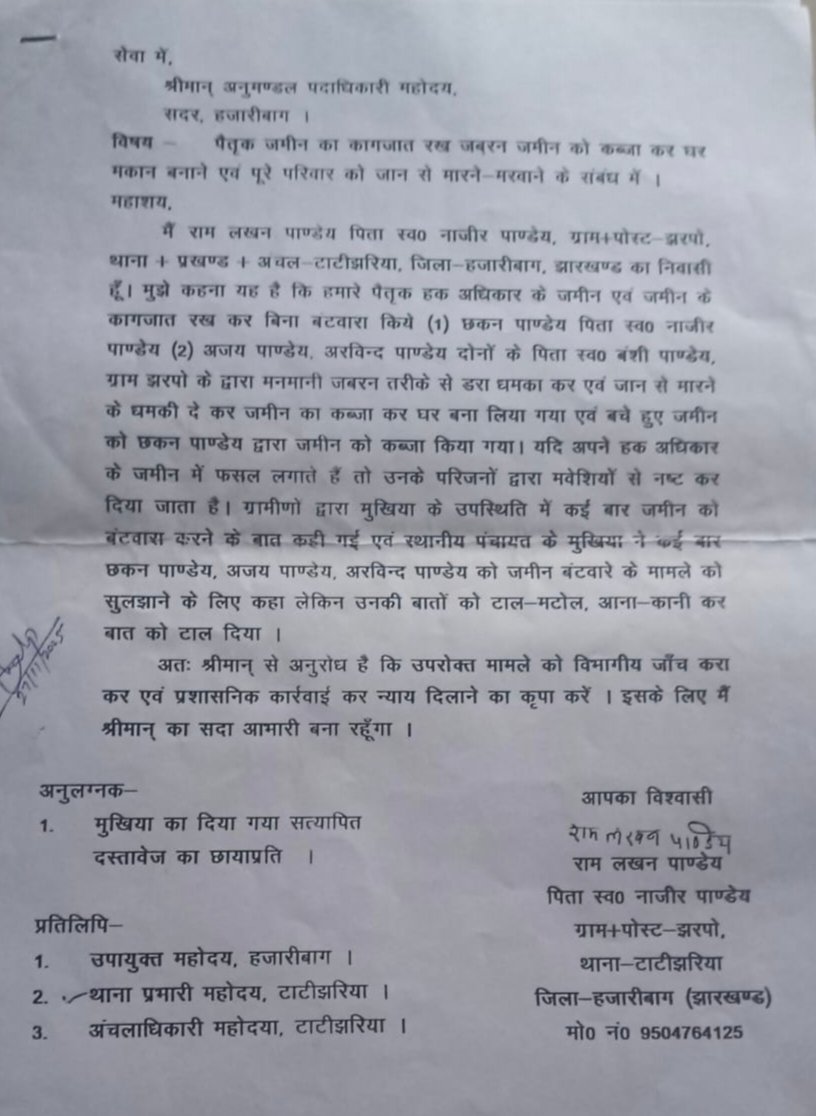 सेवा में,
श्रीमान् अनुमण्डल पदाधिकारी महोदय,
सदर, हजारीबाग ।
विषय – पैतृक जमीन का कागजात रख जबरन जमीन को कब्जा कर घर
मकान बनाने एवं पूरे परिवार को जान से मारने–मरवाने के संबंध में ।
महाशय,
मैं राम लखन पाण्डेय पिता स्व0 नाजीर पाण्डेय, ग्राम+पोस्ट–झरपो,
थाना + प्रखण्ड + अंचल–टाटीझरिया, जिला–हजारीबाग, झारखण्ड का निवासी
हूँ। मुझे कहना यह है कि हमारे पैतृक हक अधिकार के जमीन एवं जमीन के
कागजात रख कर बिना बंटवारा किये (1) छकन पाण्डेय पिता स्व0 नाजीर
पाण्डेय (2) अजय पाण्डेय, अरविन्द पाण्डेय दोनों के पिता स्व0 बंशी पाण्डेय,
ग्राम झरपो के द्वारा मनमानी जबरन तरीके से डरा धमका कर एवं जान से मारने
के धमकी दे कर जमीन का कब्जा कर घर बना लिया गया एवं बचे हुए जमीन
को छकन पाण्डेय द्वारा जमीन को कब्जा किया गया। यदि अपने हक अधिकार
के जमीन में फसल लगाते हैं तो उनके परिजनों द्वारा मवेशियों से नष्ट कर
दिया जाता है। ग्रामीणों द्वारा मुखिया के उपस्थिति में कई बार जमीन को
बंटवारा करने के बात कही गई एवं स्थानीय पंचायत के मुखिया ने कई बार
छकन पाण्डेय, अजय पाण्डेय, अरविन्द पाण्डेय को जमीन बंटवारे के मामले को
सुलझाने के लिए कहा लेकिन उनकी बातों को टाल–मटोल, आना–कानी कर
बात को टाल दिया ।
27/11/2025
अतः श्रीमान् से अनुरोध है कि उपरोक्त मामले को विभागीय जाँच करा
कर एवं प्रशासनिक कार्रवाई कर न्याय दिलाने का कृपा करें । इसके लिए मैं
श्रीमान् का सदा आभारी बना रहूँगा ।
अनुलग्नक–
1. मुखिया का दिया गया सत्यापित
दस्तावेज का छायाप्रति ।
आपका विश्वासी
राम लखन पाण्डेय
राम लखन पाण्डेय
पिता स्व0 नाजीर पाण्डेय
ग्राम+पोस्ट–झरपो,
थाना–टाटीझरिया
जिला–हजारीबाग (झारखण्ड)
मो0 नं0 9504764125
प्रतिलिपि–
1. उपायुक्त महोदय, हजारीबाग ।
2. थाना प्रभारी महोदय, टाटीझरिया ।
3. अंचलाधिकारी महोदया, टाटीझरिया ।